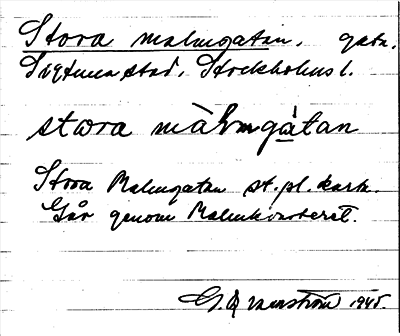 Stora malmgatan, gata,
Sigtuna stad, Stockholms l.
stωra màlmgátan
Stora Malmgatan st.pl. kark.
Går genom Malmkvarteret.
G. 1945.